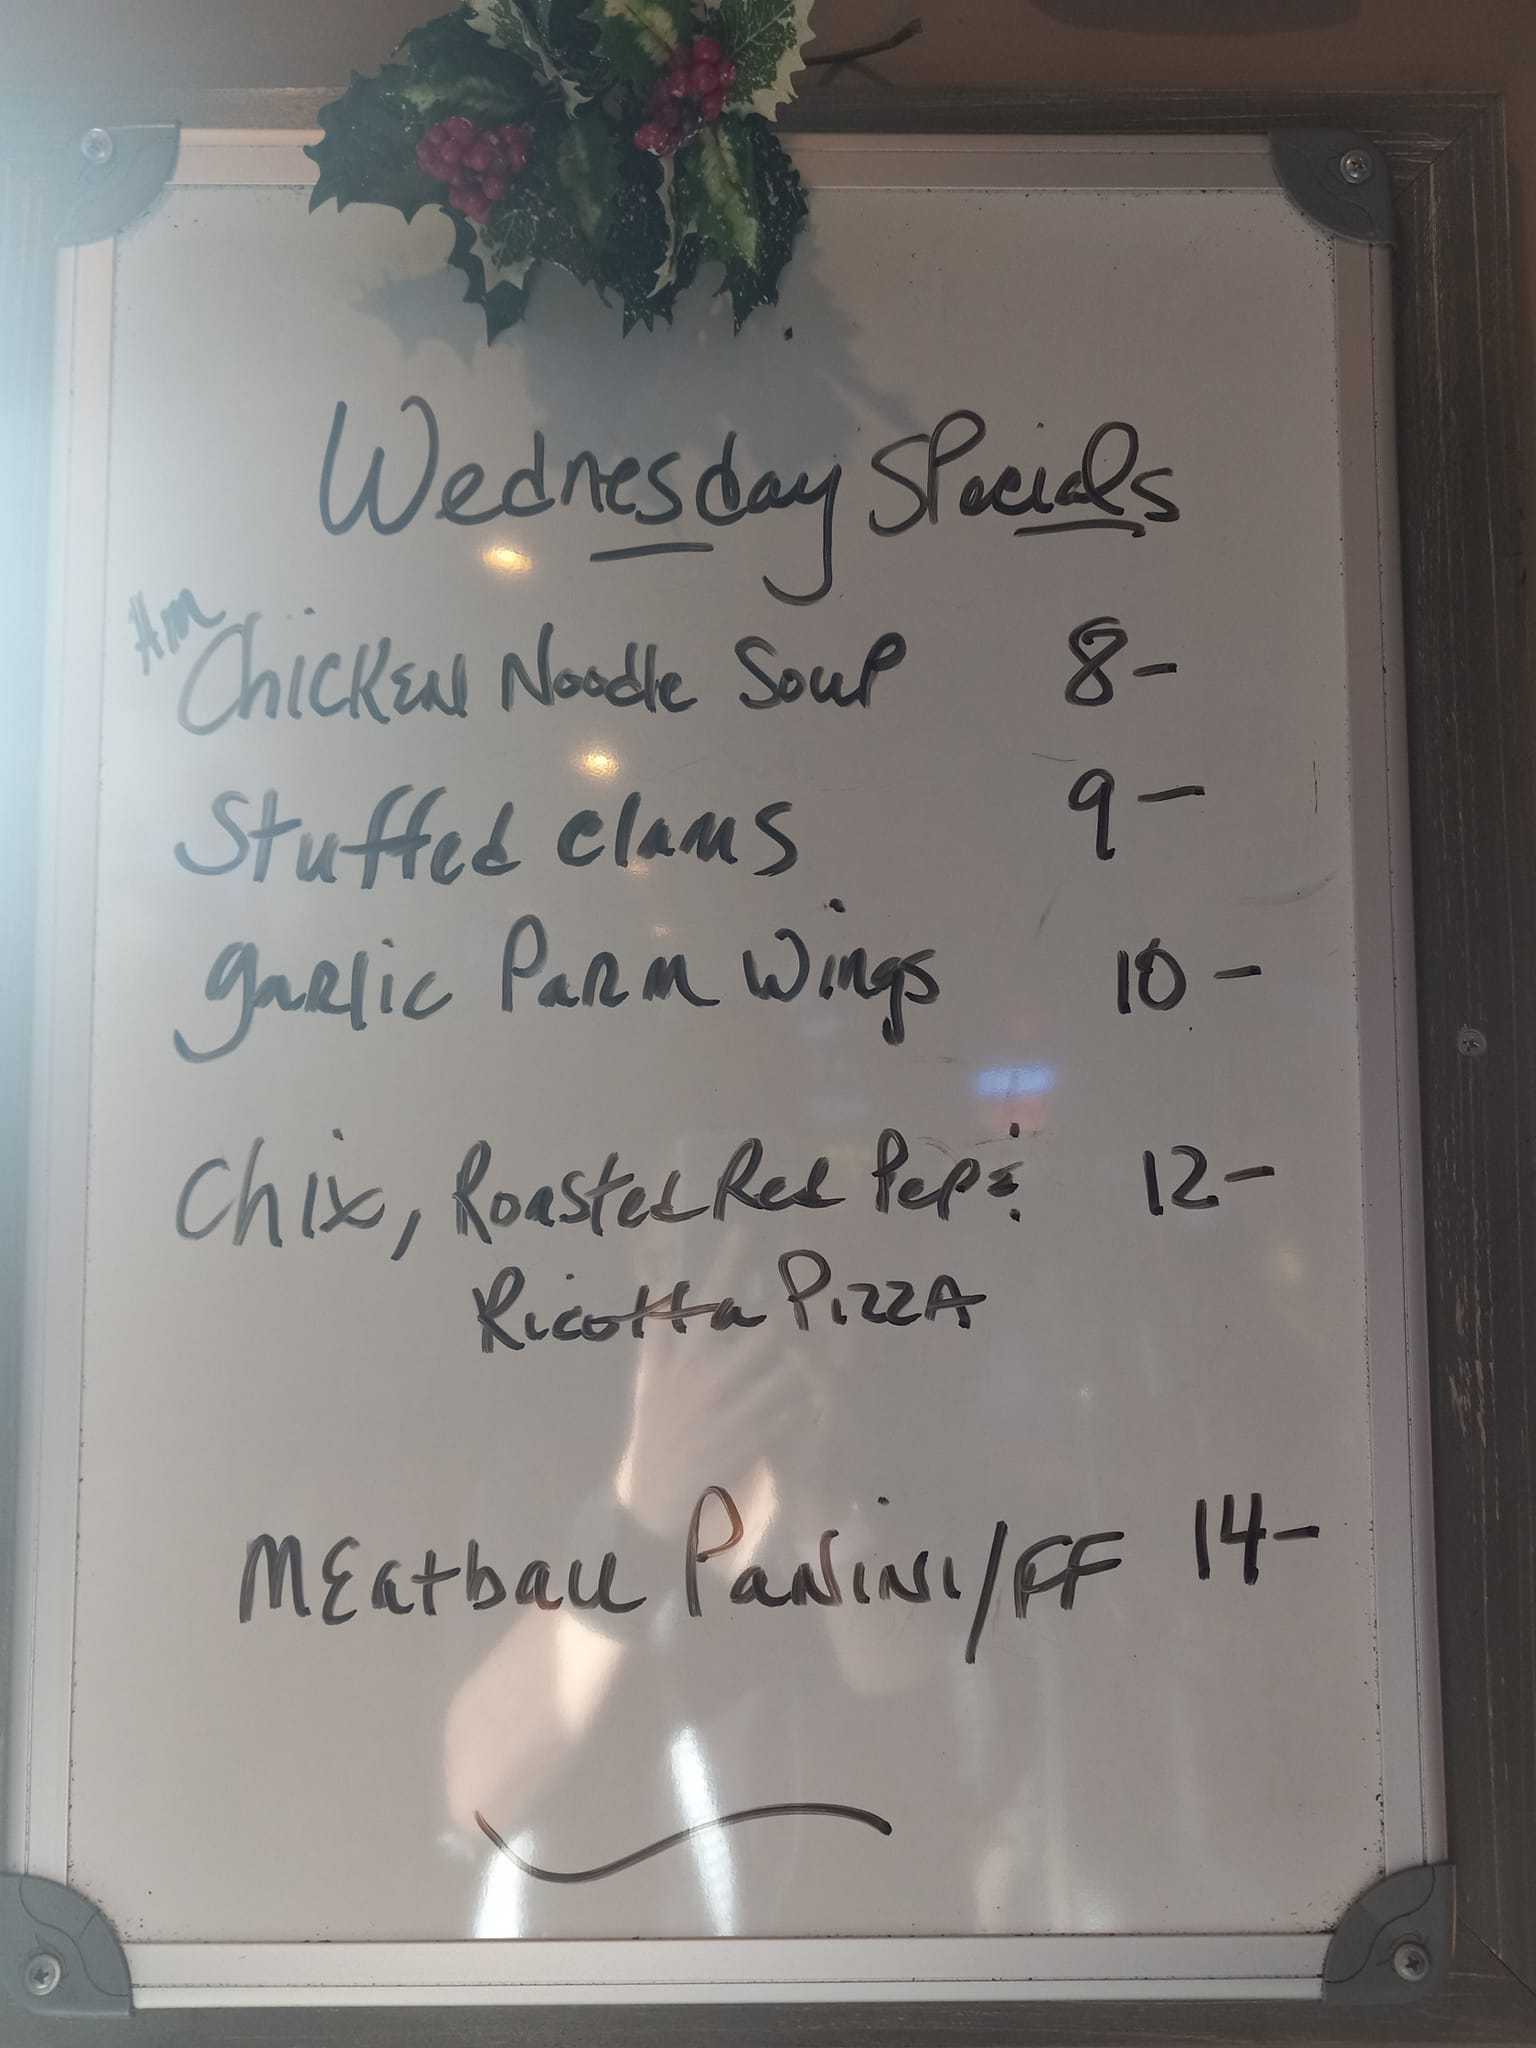 Wednesday Specials
Hm
Chicken Noodle Soup 8-
Stuffed Clams 9-
Garlic Parm Wings 10-
Chix, Roasted Red Pep & 12-
Ricotta Pizza
Meatball Panini/FF 14-